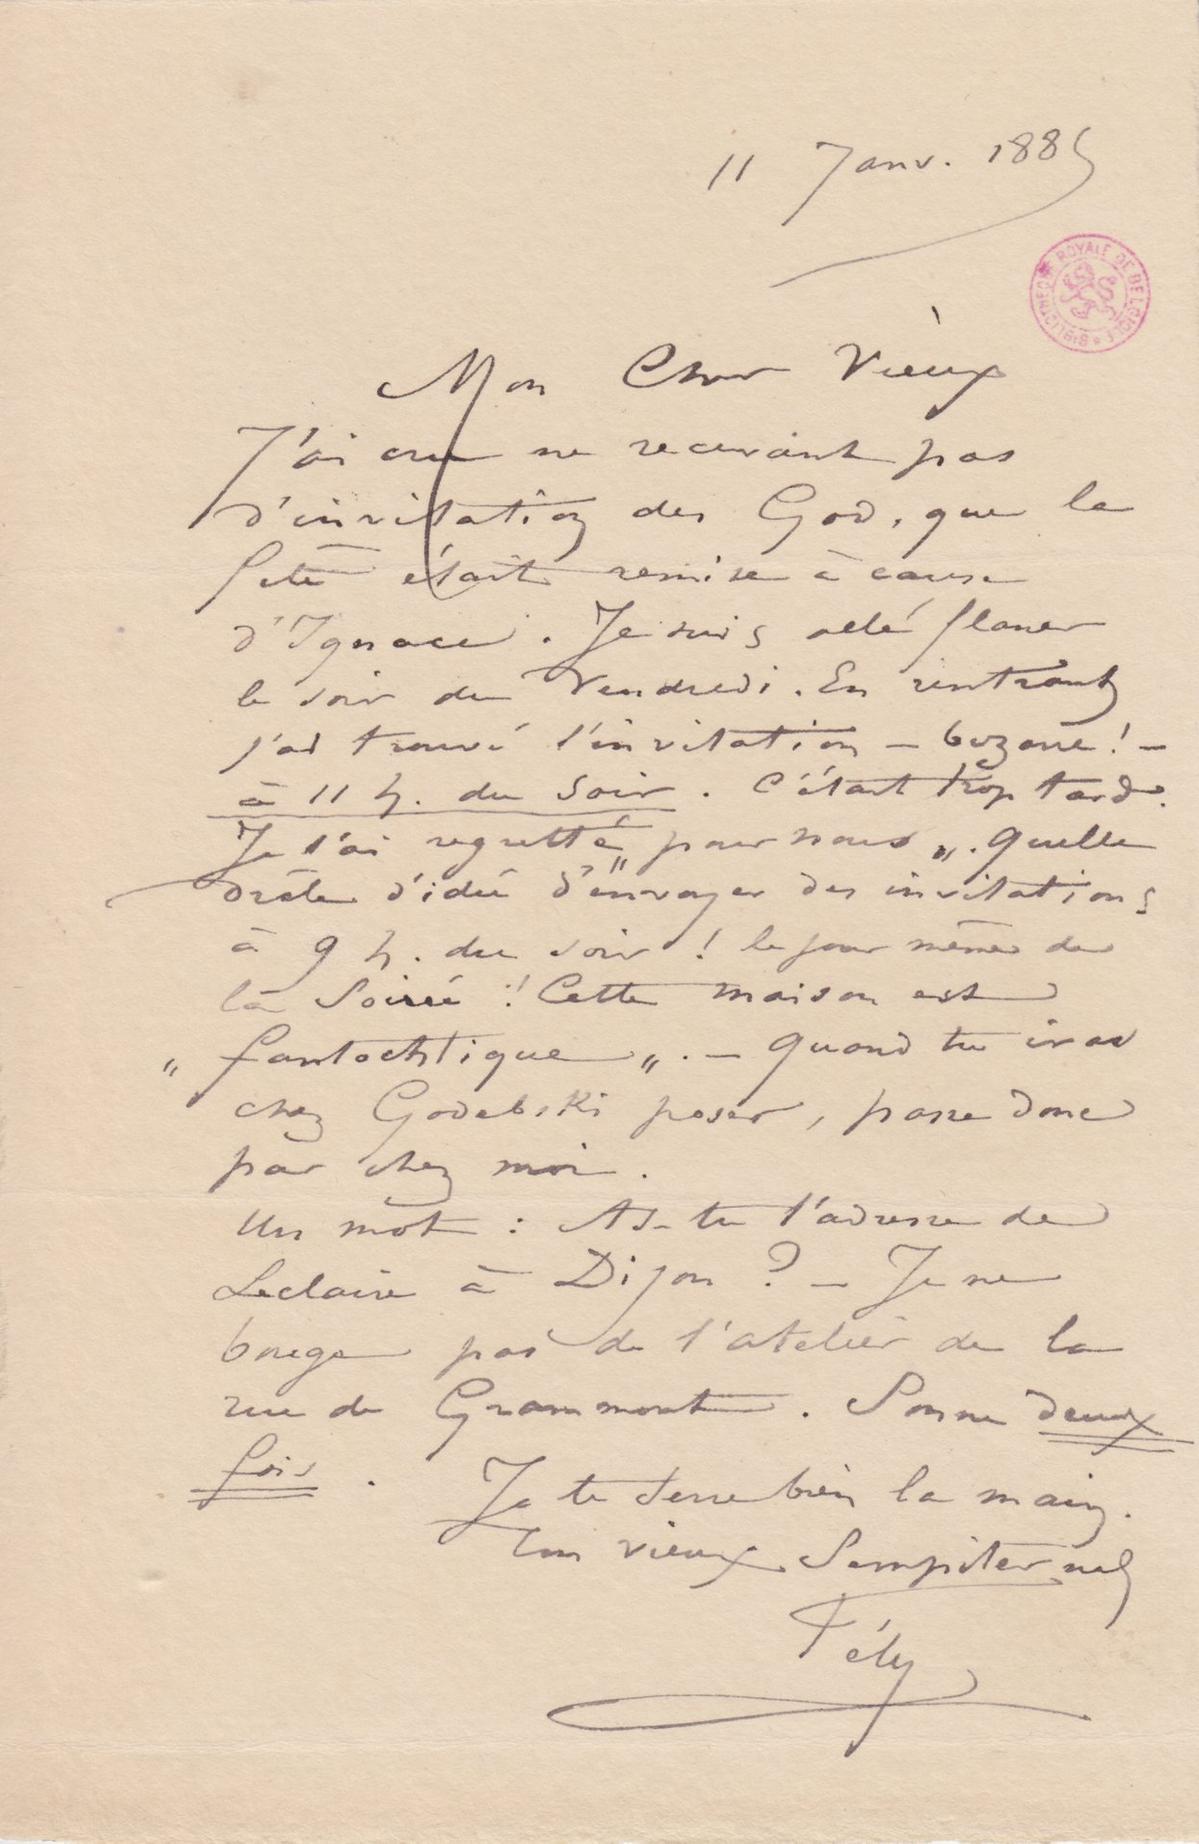 11 Janv. 1885
BIBLIOTHECA ROYALE DE BELGIQUE
Mon Cher Vieux
J'ai cru ne recevant pas
d'invitation des God, que la
fête était remise à cause
d'Ignace. Je suis allé flaner
le soir du Vendredi. En rentrant
j'ai trouvé l'invitation – bizarre ! –
à 11 h. du Soir. C'était trop tard.
Je l'ai regretté „ pour nous „. Quelle
drôle d'idée d'envoyer des invitations
à 9 h. du soir ! le jour même de
la Soirée ! Cette maison est
„ fantochtique „. – Quand tu iras
chez Godebski poser, passe donc
par chez moi.
Un mot : As-tu l'adresse de
Leclaire à Dijon ? – Je ne
bouge pas de l'atelier de la
rue de Grammont. Sonne deux
fois.
Je te serre bien la main.
Ton vieux Sempiternel
Fély